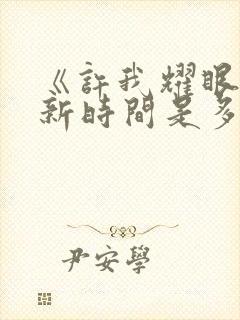 《許我耀眼
新時間是多
尹安學